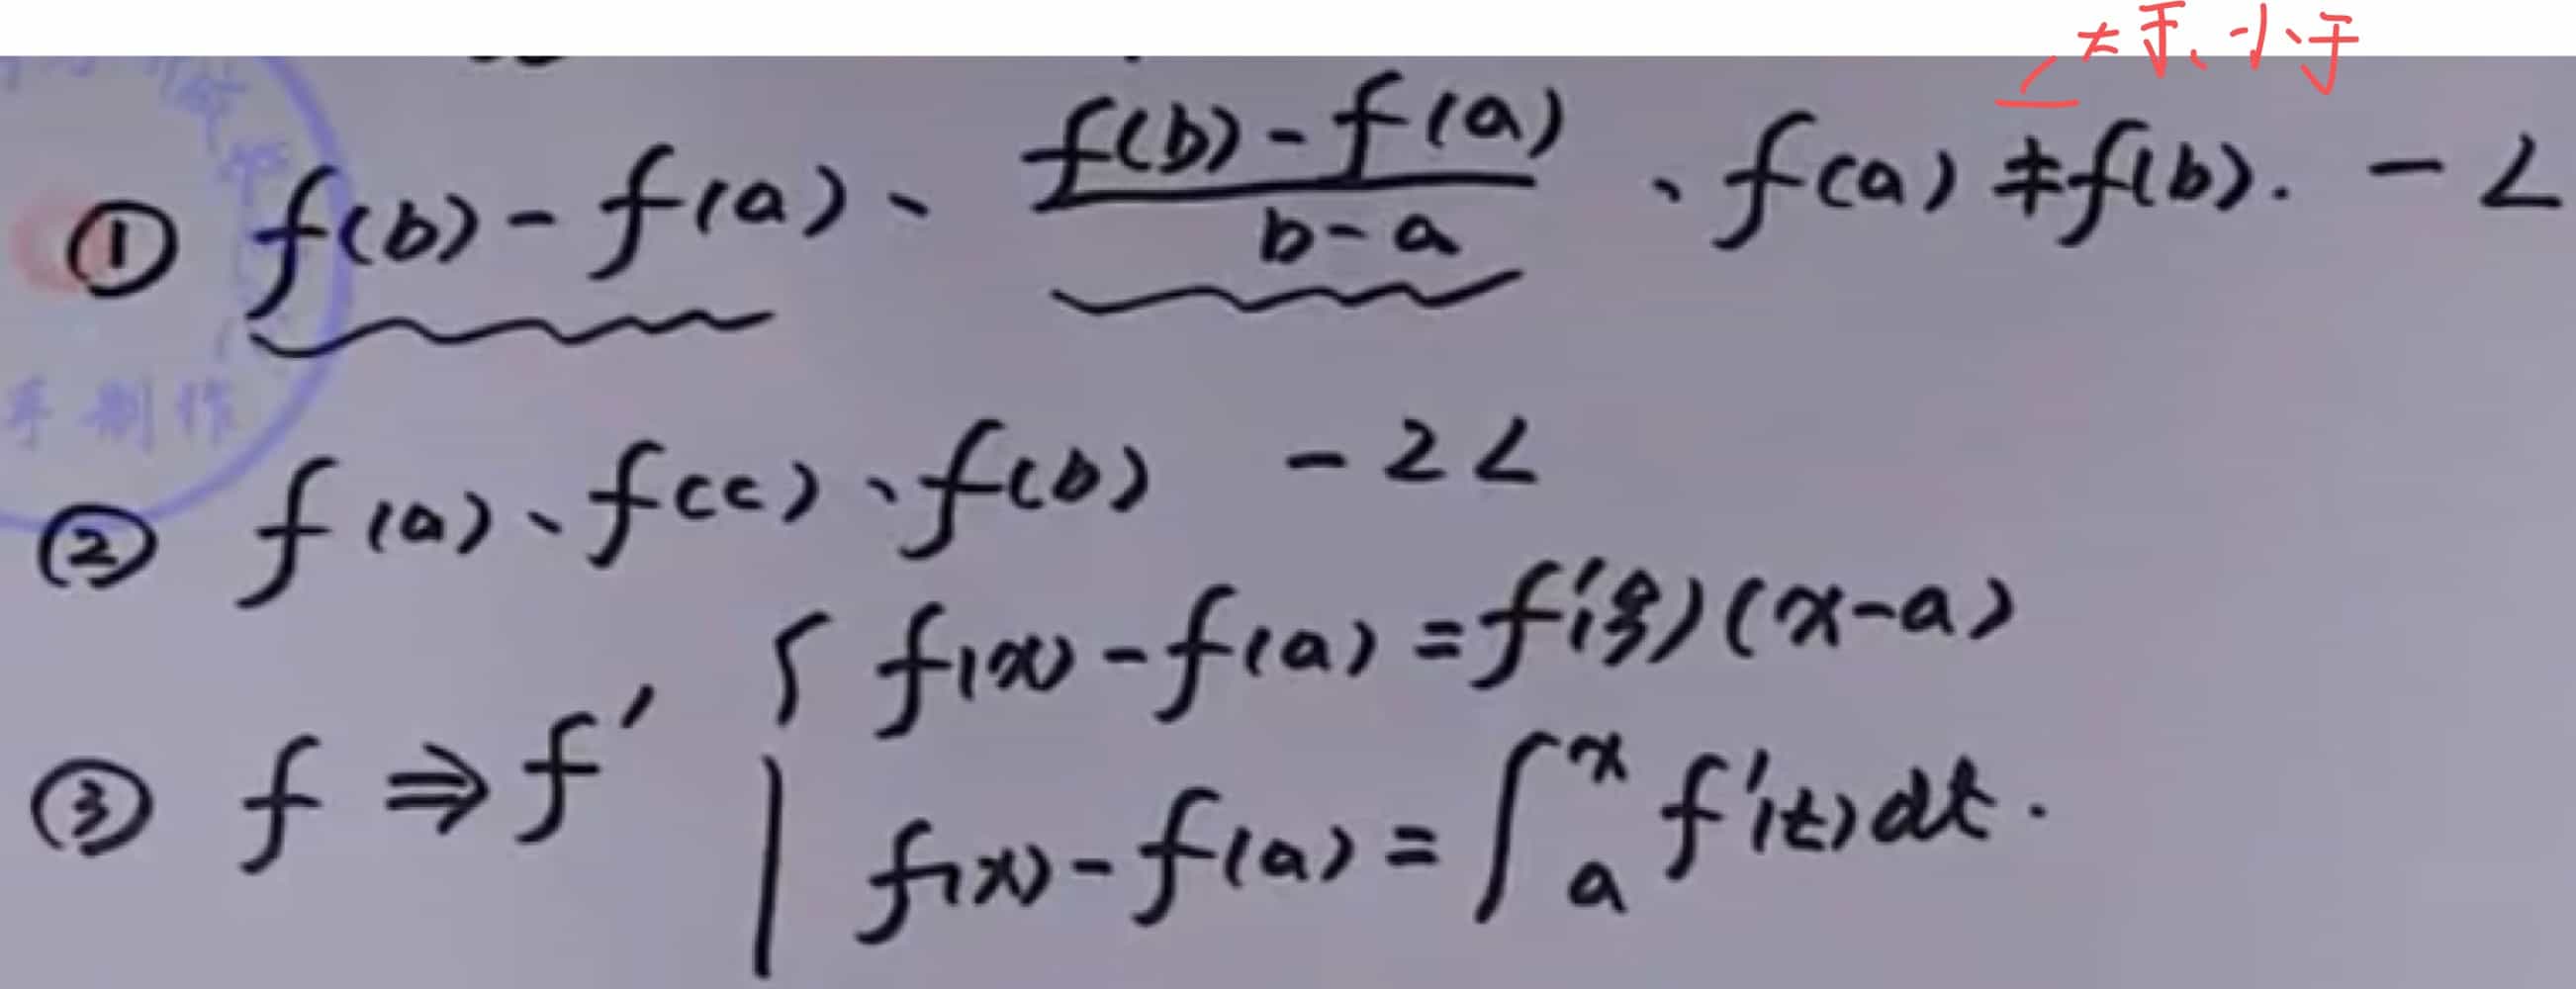 大于、小于
① f(b)-f(a)、 \frac{f(b)-f(a)}{b-a} 、f(a)≠f(b). -L
② f(a)、f(c)、f(b) -2L
③ f⇒f′ { f(x)-f(a)=f′(ξ)(x-a)
f(x)-f(a)=∫_a^x f′(t)dt.
手制作